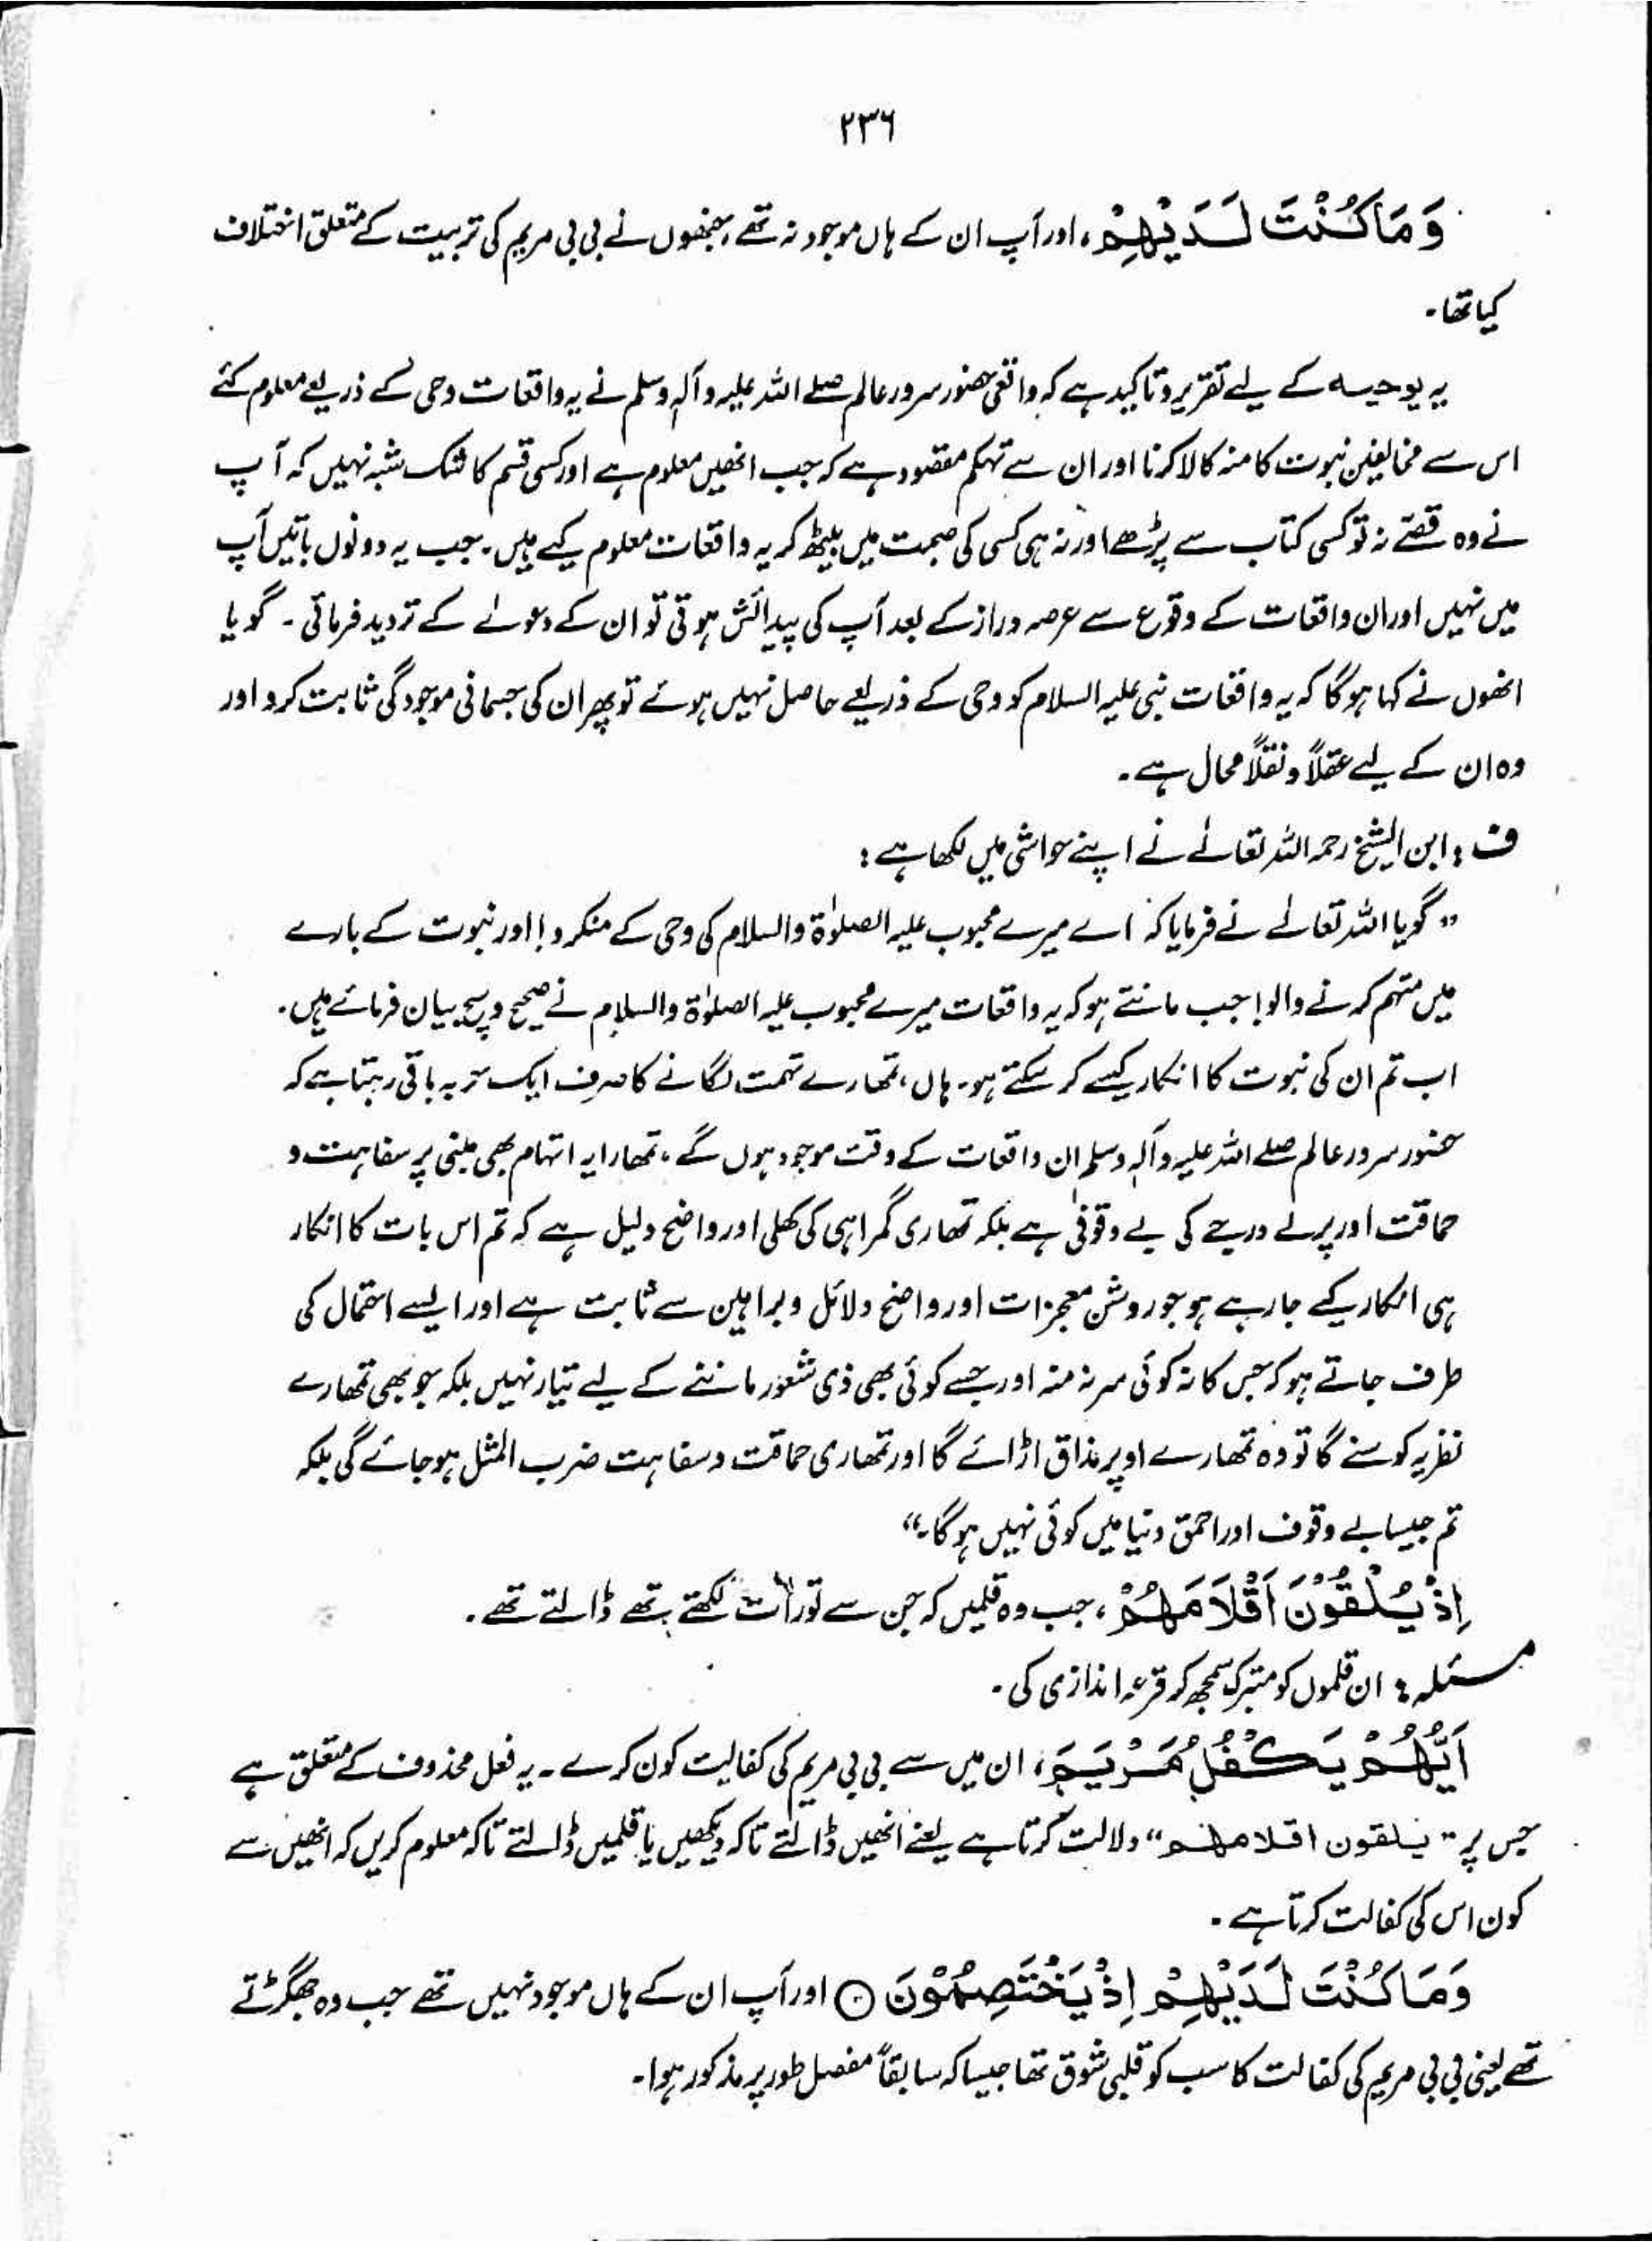 ۲۳۶
وَمَا كُنْتَ لَدَيْهِمْ، اور آپ ان کے ہاں موجود نہ تھے، جنھوں نے بی بی مریم کی تربیت کے متعلق اختلاف
کیا تھا۔
یہ یوحیہ کے لیے تقریر و تاکید ہے کہ واقعی حضور سرور عالم صلے اللہ علیہ وآلہ وسلم نے یہ واقعات وحی کے ذریعے معلوم کئے
اس سے مخالفین نبوت کا منہ کالا کرنا اور ان سے تہکم مقصود ہے کہ جب انھیں معلوم ہے اور کسی قسم کا شک شبہ نہیں کہ آپ
نے وہ قصے نہ تو کسی کتاب سے پڑھے اور نہ ہی کسی کی صحبت میں بیٹھ کر یہ واقعات معلوم کیے ہیں۔ جب یہ دونوں باتیں آپ
میں نہیں اور ان واقعات کے وقوع سے عرصہ دراز کے بعد آپ کی پیدائش ہوتی تو ان کے دعوٰے کے تردید فرمائی۔ گویا
انھوں نے کہا ہوگا کہ یہ واقعات نبی علیہ السلام کو وحی کے ذریعے حاصل نہیں ہوئے تو پھر ان کی جسمانی موجودگی ثابت کرو اور
وہ ان کے لیے عقلاً و نقلاً محال ہے۔
ف : ابن الشیخ رحمہ اللہ تعالےٰ نے اپنے حواشی میں لکھا ہے :
” گویا اللہ تعالےٰ نے فرمایا کہ اے میرے محبوب علیہ الصلوٰۃ والسلام کی وحی کے منکرو! اور نبوت کے بارے
میں متہم کرنے والو! جب مانتے ہو کہ یہ واقعات میرے محبوب علیہ الصلوٰۃ والسلام نے صحیح و سچ بیان فرمائے ہیں۔
اب تم ان کی نبوت کا انکار کیسے کر سکتے ہو۔ ہاں، تمھارے تہمت لگانے کا صرف ایک حربہ باقی رہتا ہے کہ
حضور سرور عالم صلے اللہ علیہ وآلہ وسلم ان واقعات کے وقت موجود ہوں گے، تمھارا یہ اتہام بھی مبنی پر سفاہت و
حماقت اور پرلے درجے کی بے وقوفی ہے بلکہ تمھاری گمراہی کی کھلی اور واضح دلیل ہے کہ تم اس بات کا انکار
ہی انکار کیے جا رہے ہو جو روشن معجزات اور واضح دلائل و براہین سے ثابت ہے اور ایسے احتمال کی
طرف جاتے ہو کہ جس کا نہ کوئی سر نہ منہ اور جسے کوئی بھی ذی شعور ماننے کے لیے تیار نہیں بلکہ جو بھی تمھارے
نظریہ کو سنے گا تو وہ تمھارے اوپر مذاق اڑائے گا اور تمھاری حماقت و سفاہت ضرب المثل ہو جائے گی بلکہ
تم جیسا بے وقوف اور احمق دنیا میں کوئی نہیں ہوگا۔“
اِذْ يُلْقُوْنَ اَقْلَامَهُمْ، جب وہ قلمیں کہ جن سے تورات لکھتے تھے ڈالتے تھے۔
مسئلہ : ان قلموں کو متبرک سمجھ کر قرعہ اندازی کی۔
اَيُّهُمْ يَكْفُلُ مَرْيَمَ، ان میں سے بی بی مریم کی کفالیت کون کرے۔ یہ فعل محذوف کے متعلق ہے
جس پر ” يلقون اقلامهم “ دلالت کرتا ہے یعنے انھیں ڈالتے تاکہ دیکھیں یا قلمیں ڈالتے تاکہ معلوم کریں کہ انھیں سے
کون اس کی کفالت کرتا ہے۔
وَمَا كُنْتَ لَدَيْهِمْ اِذْ يَخْتَصِمُوْنَ ○ اور آپ ان کے ہاں موجود نہیں تھے جب وہ جھگڑتے
تھے یعنی بی بی مریم کی کفالت کا سب کو قلبی شوق تھا جیسا کہ سابقاً مفصل طور پر مذکور ہوا۔